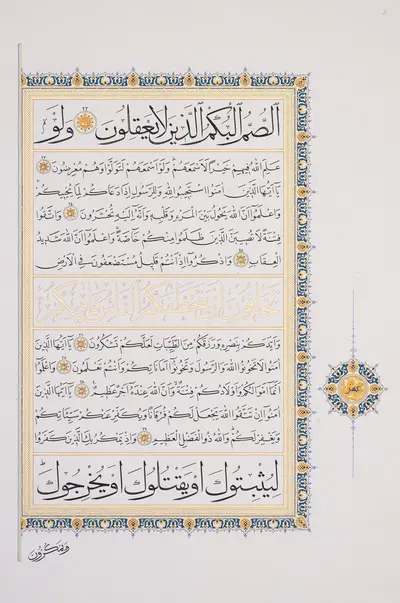 الصُّمُّ الْبُكْمُ الَّذِينَ لَا يَعْقِلُونَ ٢٢ وَلَوْ
عَلِمَ اللَّهُ فِيهِمْ خَيْرًا لَأَسْمَعَهُمْ وَلَوْ أَسْمَعَهُمْ لَتَوَلَّوْا وَهُمْ مُعْرِضُونَ ٢٣
يَا أَيُّهَا الَّذِينَ آمَنُوا اسْتَجِيبُوا لِلَّهِ وَلِلرَّسُولِ إِذَا دَعَاكُمْ لِمَا يُحْيِيكُمْ
وَاعْلَمُوا أَنَّ اللَّهَ يَحُولُ بَيْنَ الْمَرْءِ وَقَلْبِهِ وَأَنَّهُ إِلَيْهِ تُحْشَرُونَ ٢٤ وَاتَّقُوا
فِتْنَةً لَا تُصِيبَنَّ الَّذِينَ ظَلَمُوا مِنْكُمْ خَاصَّةً وَاعْلَمُوا أَنَّ اللَّهَ شَدِيدُ
الْعِقَابِ ٢٥ وَاذْكُرُوا إِذْ أَنْتُمْ قَلِيلٌ مُسْتَضْعَفُونَ فِي الْأَرْضِ
تَخَافُونَ أَنْ يَتَخَطَّفَكُمُ النَّاسُ فَآوَاكُمْ
وَأَيَّدَكُمْ بِنَصْرِهِ وَرَزَقَكُمْ مِنَ الطَّيِّبَاتِ لَعَلَّكُمْ تَشْكُرُونَ ٢٦ يَا أَيُّهَا الَّذِينَ
آمَنُوا لَا تَخُونُوا اللَّهَ وَالرَّسُولَ وَتَخُونُوا أَمَانَاتِكُمْ وَأَنْتُمْ تَعْلَمُونَ ٢٧ وَاعْلَمُوا
أَنَّمَا أَمْوَالُكُمْ وَأَوْلَادُكُمْ فِتْنَةٌ وَأَنَّ اللَّهَ عِنْدَهُ أَجْرٌ عَظِيمٌ ٢٨ يَا أَيُّهَا الَّذِينَ
آمَنُوا إِنْ تَتَّقُوا اللَّهَ يَجْعَلْ لَكُمْ فُرْقَانًا وَيُكَفِّرْ عَنْكُمْ سَيِّئَاتِكُمْ
وَيَغْفِرْ لَكُمْ وَاللَّهُ ذُو الْفَضْلِ الْعَظِيمِ ٢٩ وَإِذْ يَمْكُرُ بِكَ الَّذِينَ كَفَرُوا
لِيُثْبِتُوكَ أَوْ يَقْتُلُوكَ أَوْ يُخْرِجُوكَ
وَيَمْكُرُونَ